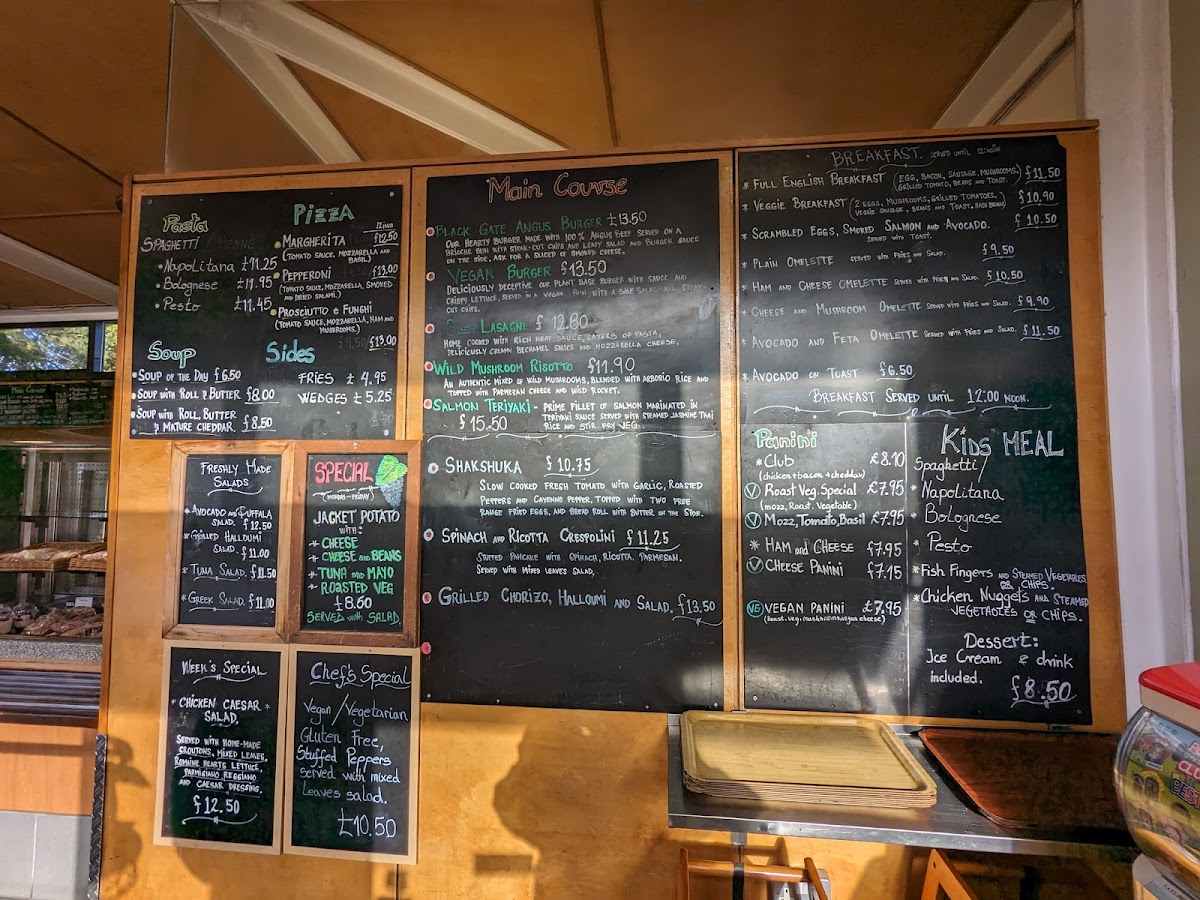 Pasta
SPAGHETTI / PENNE
Napolitana £11.25
Bolognese £11.95
Pesto £11.45
PIZZA
12 INCH
MARGHERITA £12.50
(TOMATO SAUCE, MOZZARELLA AND
BASIL)
PEPPERONI £13.00
(TOMATO SAUCE, MOZZARELLA, SMOKED
AND DRIED SALAMI.)
PROSCIUTTO e FUNGHI
(TOMATO SAUCE, MOZZARELLA, HAM AND
MUSHROOMS.)
£13.00
Soup
SOUP OF THE DAY £6.50
SOUP WITH ROLL & BUTTER £8.00
SOUP WITH ROLL, BUTTER
& MATURE CHEDDAR. £8.50
Sides
FRIES £4.95
WEDGES £5.25
FRESHLY MADE
SALADS
* AVOCADO AND BUFFALA
SALAD. £12.50
* GRILLED HALLOUMI
SALAD. £11.00
* TUNA SALAD. £11.50
* GREEK SALAD. £11.00
SPECIAL
(MONDAY - FRIDAY)
JACKET POTATO
WITH:
* CHEESE
* CHEESE AND BEANS
* TUNA AND MAYO
* ROASTED VEG
£8.50
SERVED WITH SALAD
WEEK'S SPECIAL
* CHICKEN CAESAR *
SALAD.
SERVED WITH HOME-MADE
CROUTONS, MIXED LEAVES,
ROMAINE HEARTS LETTUCE,
PARMIGIANO REGGIANO
AND CAESAR DRESSING.
£12.50
Chef's Special
Vegan/Vegetarian
Gluten Free,
Stuffed Peppers
served with mixed
leaves salad.
£10.50
Main Course
BLACK GATE ANGUS BURGER £13.50
OUR HEARTY BURGER MADE WITH 100% ANGUS BEEF SERVED ON A
BRIOCHE BUN WITH STEAK-CUT CHIPS AND LEAFY SALAD AND BURGER SAUCE
ON THE SIDE, ASK FOR A SLICE OF SMOKED CHEESE.
VEGAN BURGER £13.50
DELICIOUSLY DECEPTIVE OUR PLANT BASE BURGER WITH SAUCE AND
CRISPY LETTUCE, SERVED IN A VEGAN BUN, WITH A SIDE SALAD AND STEAK
CUT CHIPS.
LASAGNE £12.80
HOME COOKED WITH RICH MEAT SAUCE, LAYERS OF PASTA,
DELICIOUSLY CREAMY BECHAMEL SAUCE AND MOZZARELLA CHEESE.
WILD MUSHROOM RISOTTO £11.90
AN AUTHENTIC MIXED OF WILD MUSHROOMS, BLENDED WITH ARBORIO RICE AND
TOPPED WITH PARMEZAN CHEESE AND WILD ROCKET.
SALMON TERIYAKI - PRIME FILLET OF SALMON MARINATED IN
£15.50 TERIYAKI SAUCE SERVED WITH STEAMED JASMINE THAI
RICE AND STIR FRY VEG.
SHAKSHUKA £10.75
SLOW COOKED FRESH TOMATO WITH GARLIC, ROASTED
PEPPERS AND CAYENNE PEPPER. TOPPED WITH TWO FREE
RANGE FRIED EGGS, AND BREAD ROLL WITH BUTTER ON THE SIDE.
SPINACH AND RICOTTA CRESPOLINI £11.25
STUFFED PANCAKE WITH SPINACH, RICOTTA, PARMESAN.
SERVED WITH MIXED LEAVES SALAD,
GRILLED CHORIZO, HALLOUMI AND SALAD. £13.50
BREAKFAST. SERVED UNTIL 12:NOON
* FULL ENGLISH BREAKFAST (EGG, BACON, SAUSAGE, MUSHROOMS, £11.50
GRILLED TOMATO, BEANS AND TOAST.
* VEGGIE BREAKFAST (2 EGGS, MUSHROOMS, GRILLED TOMATOES, £10.90
VEGGIE SAUSAGE, BEANS AND TOAST,
* SCRAMBLED EGGS, SMOKED SALMON AND AVOCADO. £10.50
SERVED WITH TOAST.
* PLAIN OMELETTE SERVED WITH FRIES AND SALAD. £9.50
* HAM AND CHEESE OMELETTE SERVED WITH FRIES AND SALAD. £10.50
* CHEESE AND MUSHROOM OMELETTE SERVED WITH FRIES AND SALAD. £9.90
* AVOCADO AND FETA OMELETTE SERVED WITH FRIES AND SALAD. £11.50
* AVOCADO ON TOAST £6.50
BREAKFAST SERVED UNTIL 12:00 NOON.
Panini
* Club £8.10
(chicken+bacon+cheddar)
V Roast Veg. Special £7.95
(mozz, Roast. Vegetable)
V Mozz, Tomato, Basil £7.95
* HAM and CHEESE £7.95
V CHEESE PANINI £7.15
VG VEGAN PANINI £7.95
(Roast. veg. mushroom vegan cheese)
KIDS MEAL
Spaghetti/
* Napolitana
* Bolognese
* Pesto
* FISH FINGERS AND STEAMED VEGETABLES
OR CHIPS.
* CHICKEN NUGGETS AND STEAMED
VEGETABLES OR CHIPS.
DESSERT:
Ice Cream & drink
included.
£8.50